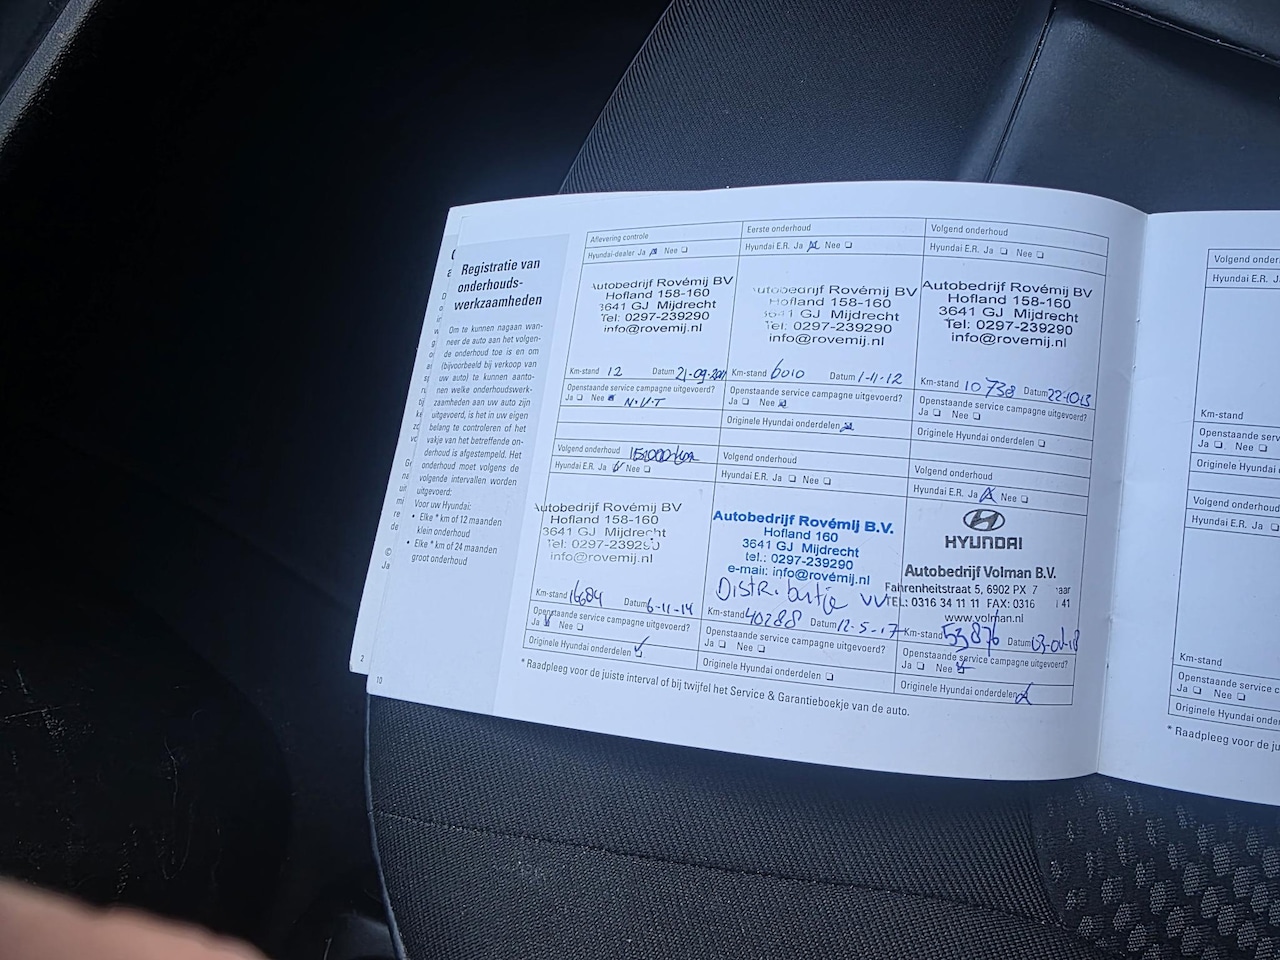 Registratie van
onderhouds-
werkzaamheden
Om te kunnen nagaan wan-
neer de auto aan het volgen-
de onderhoud toe is en om
(bijvoorbeeld bij verkoop van
uw auto) te kunnen aanto-
nen welke onderhoudswerk-
zaamheden aan uw auto zijn
uitgevoerd, is het in uw eigen
belang te controleren of het
vakje van het betreffende on-
derhoud is afgestempeld. Het
onderhoud moet volgens de
volgende intervallen worden
uitgevoerd:
Voor uw Hyundai:
• Elke * km of 12 maanden
klein onderhoud
• Elke * km of 24 maanden
groot onderhoud
2
10
Aflevering controle
Hyundai-dealer Ja Nee
Autobedrijf Rovémij BV
Hofland 158-160
3641 GJ Mijdrecht
Tel: 0297-239290
info@rovemij.nl
Km-stand 12 Datum 21-09-2011
Openstaande service campagne uitgevoerd?
Ja Nee N.V.T
Eerste onderhoud
Hyundai E.R. Ja Nee
Autobedrijf Rovémij BV
Hofland 158-160
3641 GJ Mijdrecht
Tel: 0297-239290
info@rovemij.nl
Km-stand 6010 Datum 1-11-12
Openstaande service campagne uitgevoerd?
Ja Nee
Originele Hyundai onderdelen
Volgend onderhoud
Hyundai E.R. Ja Nee
Autobedrijf Rovémij BV
Hofland 158-160
3641 GJ Mijdrecht
Tel: 0297-239290
info@rovemij.nl
Km-stand 10738 Datum 22-10-13
Openstaande service campagne uitgevoerd?
Ja Nee
Originele Hyundai onderdelen
Volgend onderhoud
Hyundai E.R. Ja Nee
Autobedrijf Rovémij BV
Hofland 158-160
3641 GJ Mijdrecht
Tel: 0297-239290
info@rovemij.nl
Km-stand 16684 Datum 6-11-14
Openstaande service campagne uitgevoerd?
Ja Nee
Originele Hyundai onderdelen
Volgend onderhoud
Hyundai E.R. Ja Nee
Autobedrijf Rovémij B.V.
Hofland 160
3641 GJ Mijdrecht
tel.: 0297-239290
e-mail: info@rovémij.nl
Distributie vv
Km-stand 40288 Datum 12-5-17
Openstaande service campagne uitgevoerd?
Ja Nee
Originele Hyundai onderdelen
Volgend onderhoud
Hyundai E.R. Ja Nee
HYUNDAI
Autobedrijf Volman B.V.
Fahrenheitstraat 5, 6902 PX 7 aar
TEL: 0316 34 11 11 FAX: 0316 41
www.volman.nl
Km-stand 53876 Datum
Openstaande service campagne uitgevoerd?
Ja Nee
Originele Hyundai onderdelen
* Raadpleeg voor de juiste interval of bij twijfel het Service & Garantieboekje van de auto.
Volgend onder
Hyundai E.R. Ja
Km-stand
Openstaande service
Ja Nee
Originele Hyundai
Volgend onder
Hyundai E.R. Ja
Km-stand
Openstaande service c
Ja Nee
Originele Hyundai onder
* Raadpleeg voor de jui